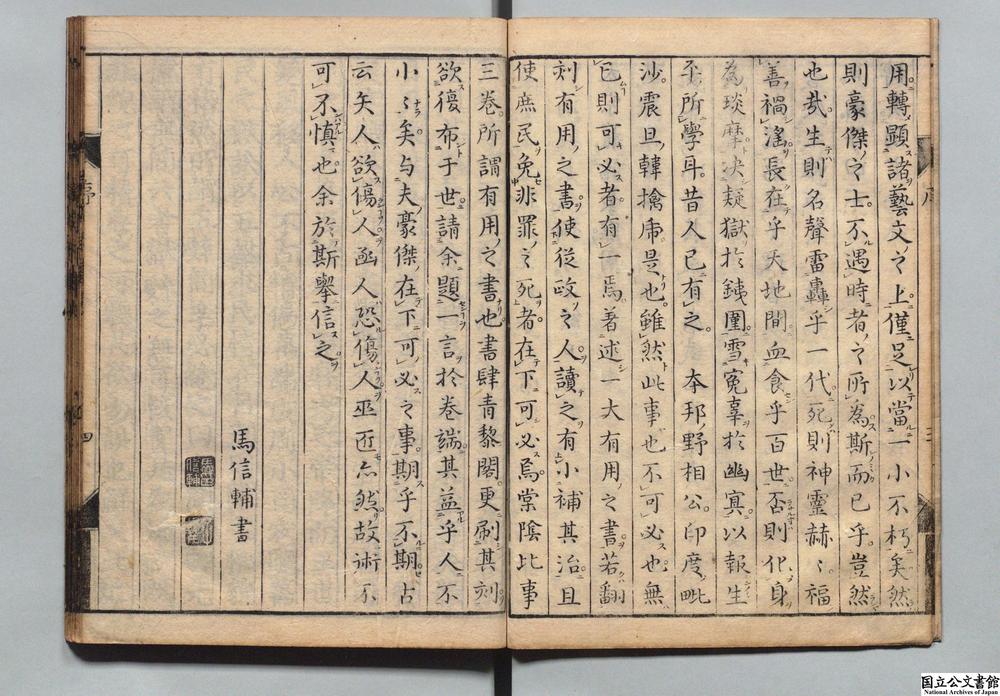 用轉顯諸藝文之上僅足以當一小不朽矣然
則豪傑之士不遇時者之所為斯而已乎豈然
也哉生則名聲雷轟乎一代死則神靈赫〻福
善禍淫長在乎天地間血食乎百世否則化身
為琰摩決疑獄於鐵圍雪冤辜於幽冥以報生
平所學耳昔人已有之本邦野相公印度毗
沙震旦韓擒虎是也雖然此事也不可必也無
已則可必者有一焉著述一大有用之書若翻
刻有用之書使從政之人讀之有小補其治且
使庶民免非罪之死者在下可必焉棠陰比事
三卷所謂有用之書也書肆青黎閣更刷其刻
欲復布于世請余題一言於卷端其益乎人不
小〻矣与夫豪傑在下可必之事期乎不期古
云矢人欲傷人函人恐傷人巫匠亦然故術不
可不慎也余於斯舉信之
馬信輔書
序
四
国立公文書館
National Archives of Japan